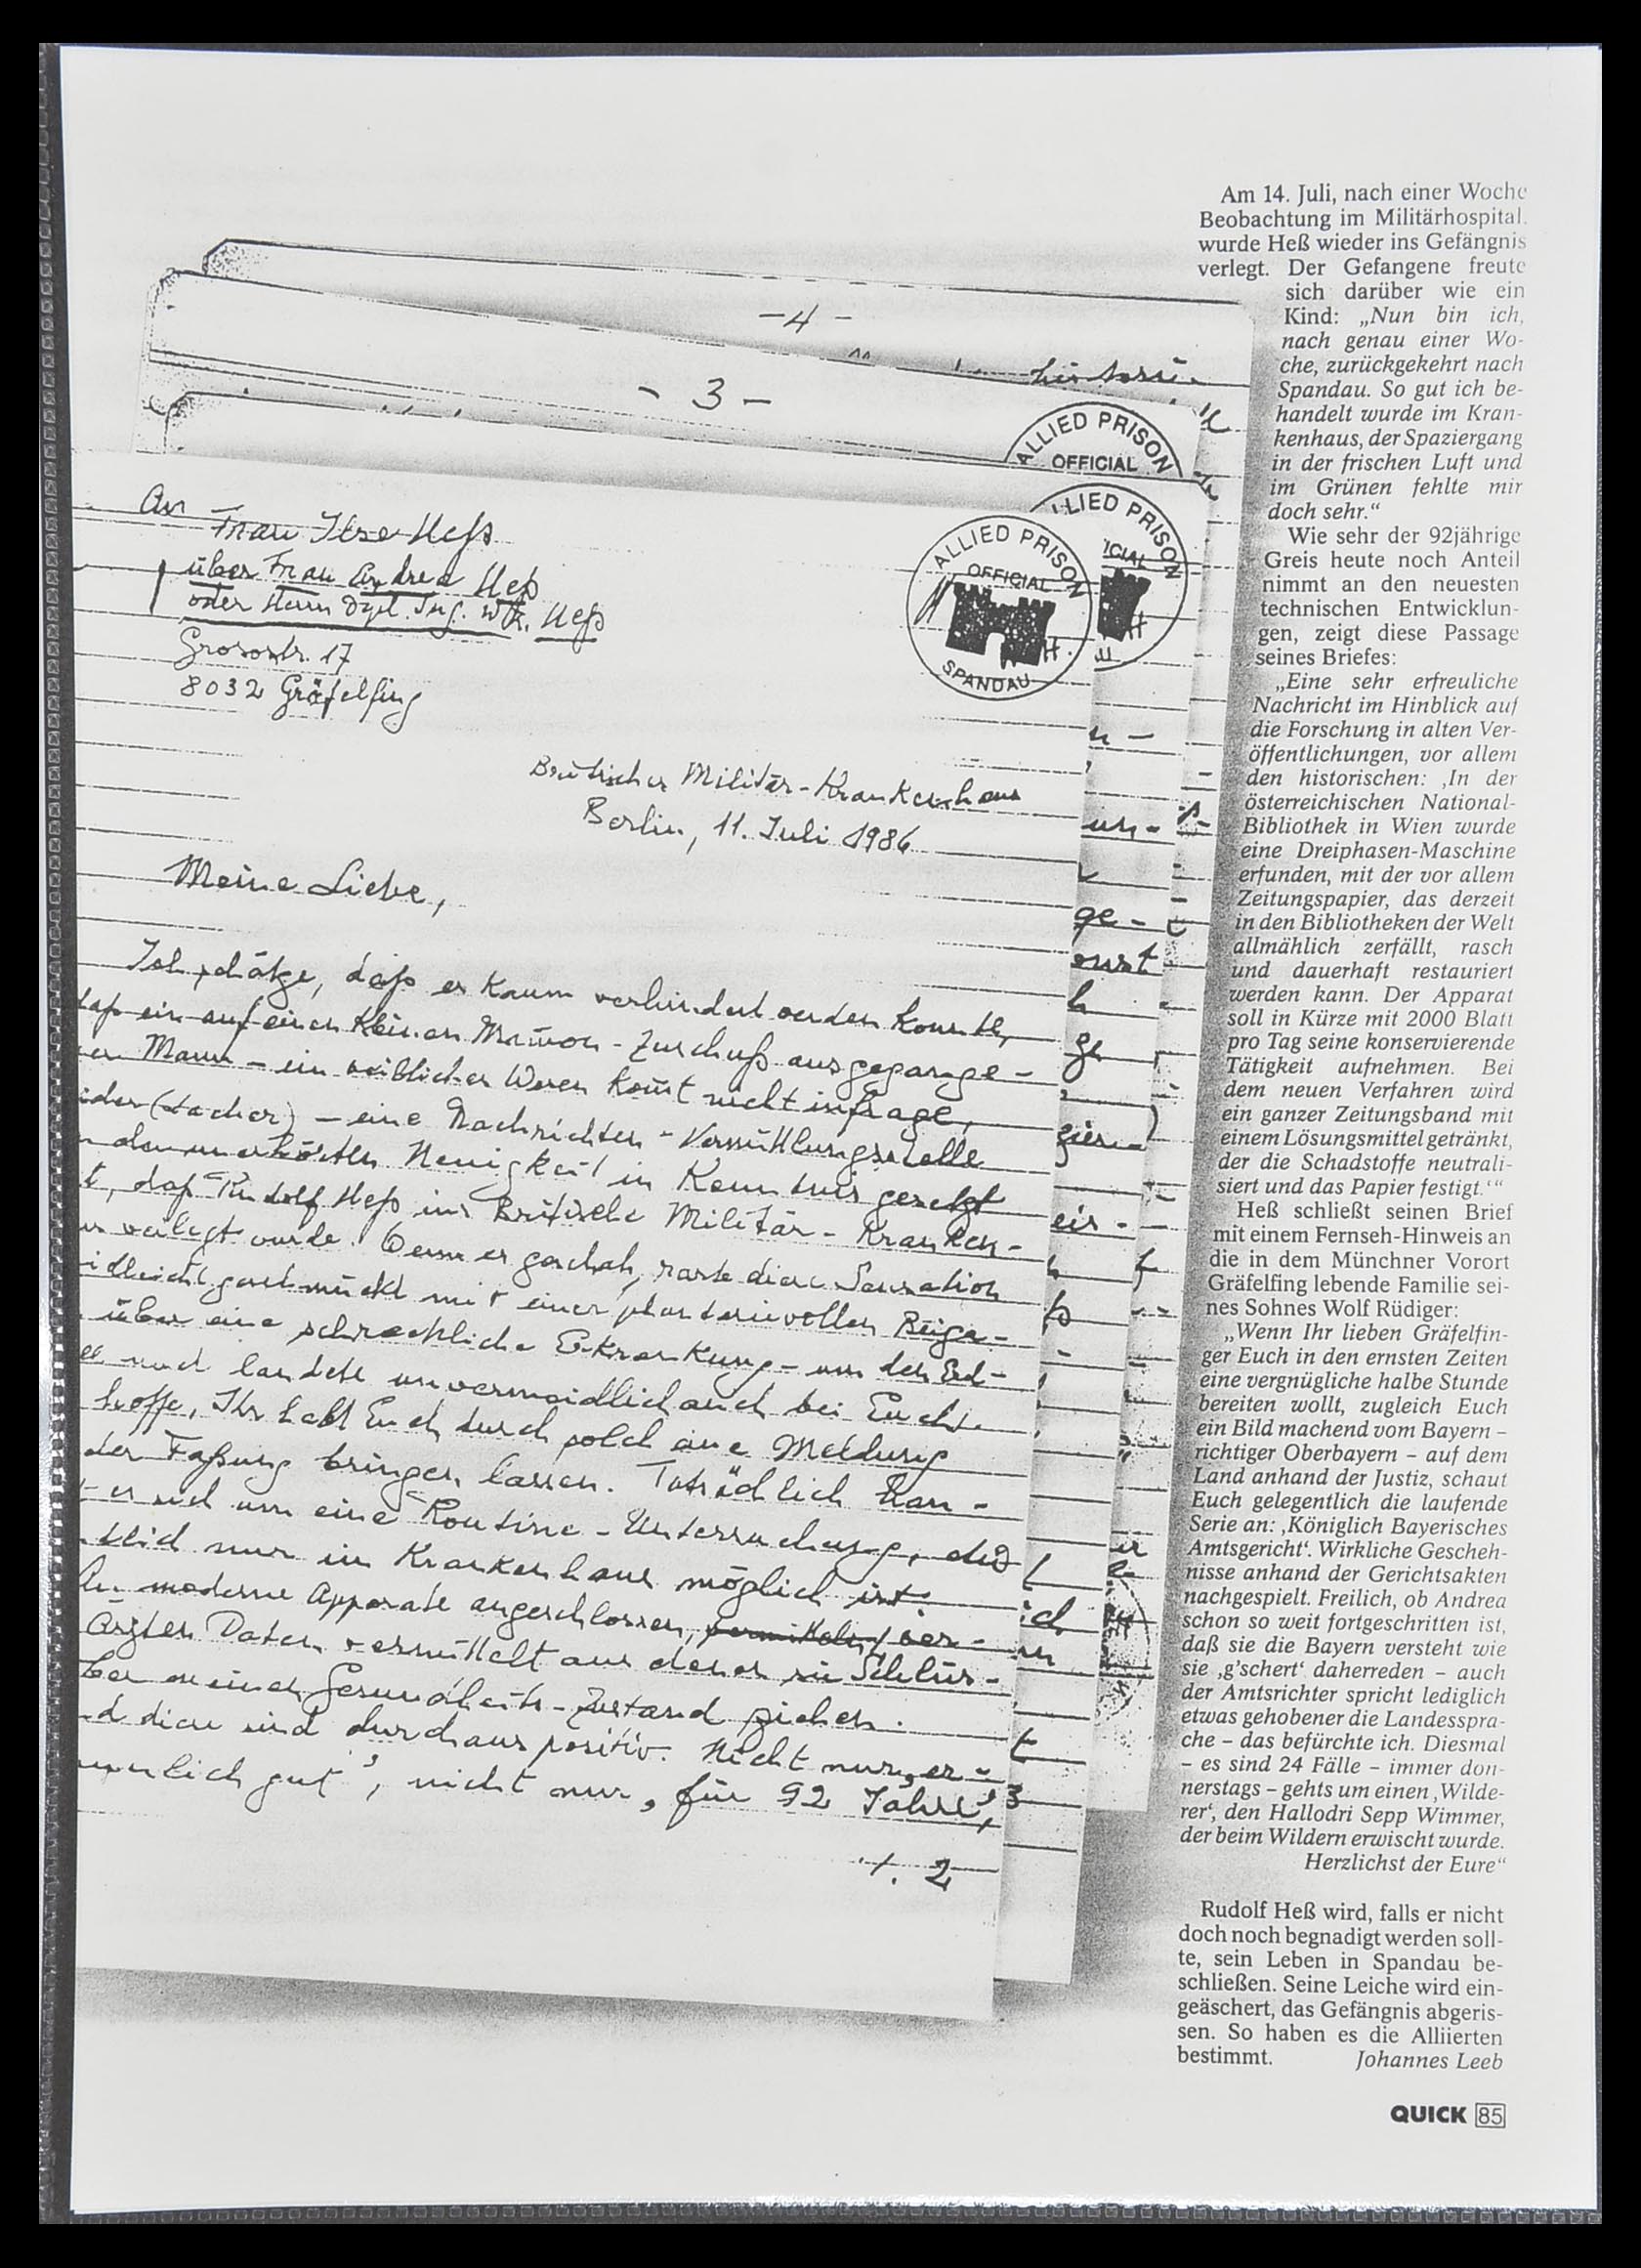 - 4 -
- 3 -
ALLIED PRISON
OFFICIAL
LLIED PRISON
ICIAL
ALLIED PRISON
OFFICIAL
SPANDAU
An
Frau Ilse Heß
über Frau Andrea Heß
oder Herrn Dipl. Ing. W. R. Heß
8032 Gräfelfing
Britisches Militär-Krankenhaus
Berlin, 11. Juli 1986
Meine Liebe,
Ich schätze, daß es kaum verhindert werden konnte,
daß ein auf einen kleinen Mammon-Zuschuß ausgegange-
er Mann – ein weibliches Wesen kommt nicht infrage,
eine Nachrichten-Vermittlungsstelle
n der unerhörten Neuigkeit in Kenntnis gesetzt
t, daß Rudolf Heß ins Britische Militär-Kranken-
us verlegt wurde. Wenn es geschah, raste diese Sensation
geschmückt mit einer phantasievollen Beiga-
über eine schreckliche Erkrankung – um den Erd-
und landete unvermeidlich auch bei Euch.
hoffe, Ihr habt Euch durch solch eine Meldung
der Faßung bringen lassen. Tatsächlich han-
t es sich um eine Routine-Untersuchung, die
nur im Krankenhaus möglich ist.
An moderne Apparate angeschlossen, wer-
Ärzten Daten vermittelt aus denen sie Schlüs-
ber meinen Gesundheits-Zustand ziehen.
d diese sind durchaus positiv. Nicht nur „er-
unlich gut“, nicht nur „für 92 Jahre“,
./. 2
Am 14. Juli, nach einer Woche
Beobachtung im Militärhospital,
wurde Heß wieder ins Gefängnis
verlegt. Der Gefangene freute
sich darüber wie ein
Kind: „Nun bin ich,
nach genau einer Wo-
che, zurückgekehrt nach
Spandau. So gut ich be-
handelt wurde im Kran-
kenhaus, der Spaziergang
in der frischen Luft und
im Grünen fehlte mir
doch sehr.“
Wie sehr der 92jährige
Greis heute noch Anteil
nimmt an den neuesten
technischen Entwicklun-
gen, zeigt diese Passage
seines Briefes:
„Eine sehr erfreuliche
Nachricht im Hinblick auf
die Forschung in alten Ver-
öffentlichungen, vor allem
den historischen: ‚In der
österreichischen National-
Bibliothek in Wien wurde
eine Dreiphasen-Maschine
erfunden, mit der vor allem
Zeitungspapier, das derzeit
in den Bibliotheken der Welt
allmählich zerfällt, rasch
und dauerhaft restauriert
werden kann. Der Apparat
soll in Kürze mit 2000 Blatt
pro Tag seine konservierende
Tätigkeit aufnehmen. Bei
dem neuen Verfahren wird
ein ganzer Zeitungsband mit
einem Lösungsmittel getränkt,
der die Schadstoffe neutrali-
siert und das Papier festigt.‘“
Heß schließt seinen Brief
mit einem Fernseh-Hinweis an
die in dem Münchner Vorort
Gräfelfing lebende Familie sei-
nes Sohnes Wolf Rüdiger:
„Wenn Ihr lieben Gräfelfin-
ger Euch in den ernsten Zeiten
eine vergnügliche halbe Stunde
bereiten wollt, zugleich Euch
ein Bild machend vom Bayern –
richtiger Oberbayern – auf dem
Land anhand der Justiz, schaut
Euch gelegentlich die laufende
Serie an: ‚Königlich Bayerisches
Amtsgericht‘. Wirkliche Gescheh-
nisse anhand der Gerichtsakten
nachgespielt. Freilich, ob Andrea
schon so weit fortgeschritten ist,
daß sie die Bayern versteht wie
sie ‚g’schert‘ daherreden – auch
der Amtsrichter spricht lediglich
etwas gehobener die Landesspra-
che – das befürchte ich. Diesmal
– es sind 24 Fälle – immer don-
nerstags – gehts um einen ‚Wilde-
rer‘, den Hallodri Sepp Wimmer,
der beim Wildern erwischt wurde.
Herzlichst der Eure“
Rudolf Heß wird, falls er nicht
doch noch begnadigt werden soll-
te, sein Leben in Spandau be-
schließen. Seine Leiche wird ein-
geäschert, das Gefängnis abgeris-
sen. So haben es die Alliierten
bestimmt. Johannes Leeb
QUICK 85